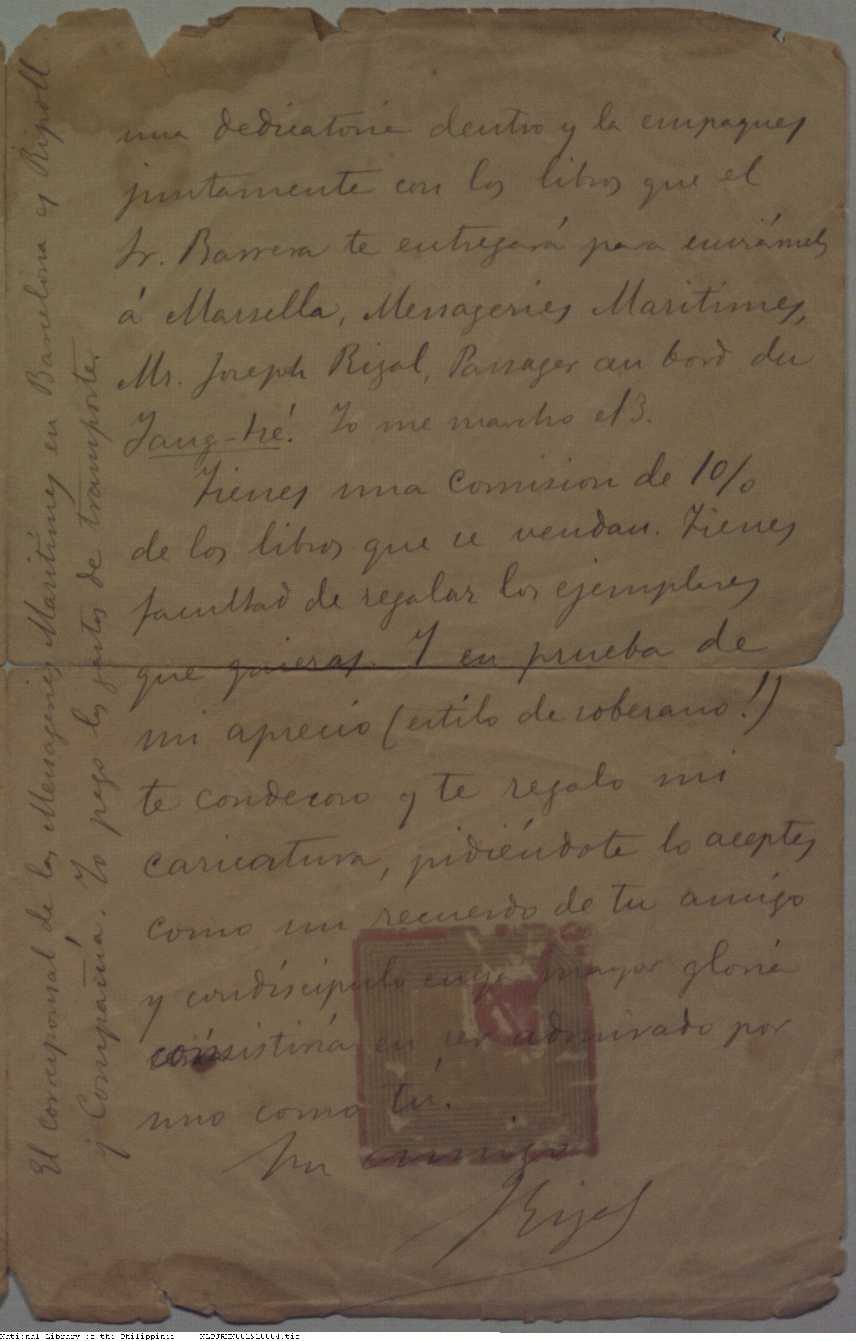 una dedicatoria dentro y la empaques
juntamente con los libros que el
Sr. Barrera te entregará para enviármelos
á Marsella, Messageries Maritimes,
Mr. Joseph Rizal, Passager au bord du
Yang-tsé. Yo me marcho el 3.
Tienes una comision de 10%
de los libros que se vendan. Tienes
facultad de regalar los ejemplares
que quieras. Y en prueba de
mi aprecio (estilo de soberano!)
te condecoro y te regalo mi
caricatura, pidiéndote lo aceptes
como un recuerdo de tu amigo
y condiscípulo cuya mayor gloria
consistiría en ser admirado por
uno como tú.
Tu amigo
JRizal
El corresponsal de las Messageries Maritimes en Barcelona es Ripoll
y Compañía. Yo pago los gastos de transporte.
National Library of the Philippines